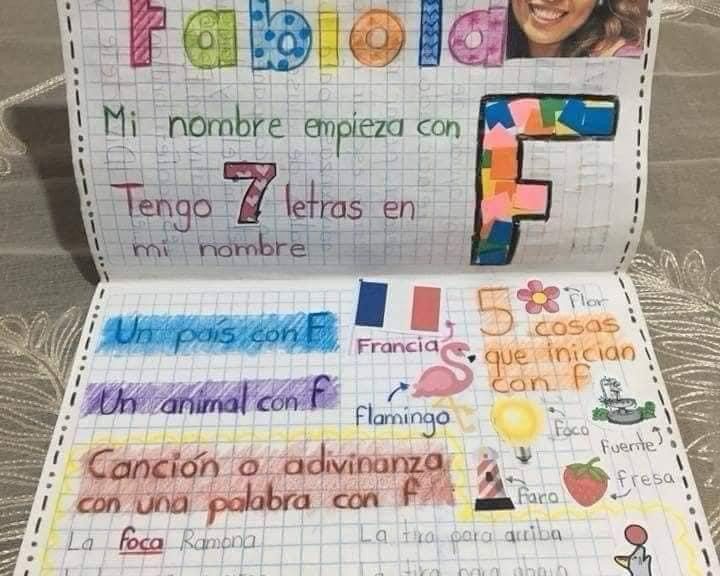 Fabiola
Mi nombre empieza con F
Tengo 7 letras en
mi nombre
Un país con F
Francia
Un animal con f
flamingo
5 cosas
que inician
con f
Flor
Foco
Fuente
Faro
fresa
Canción o adivinanza
con una palabra con f
La foca Ramona
La tira para arriba
La tira para abajo